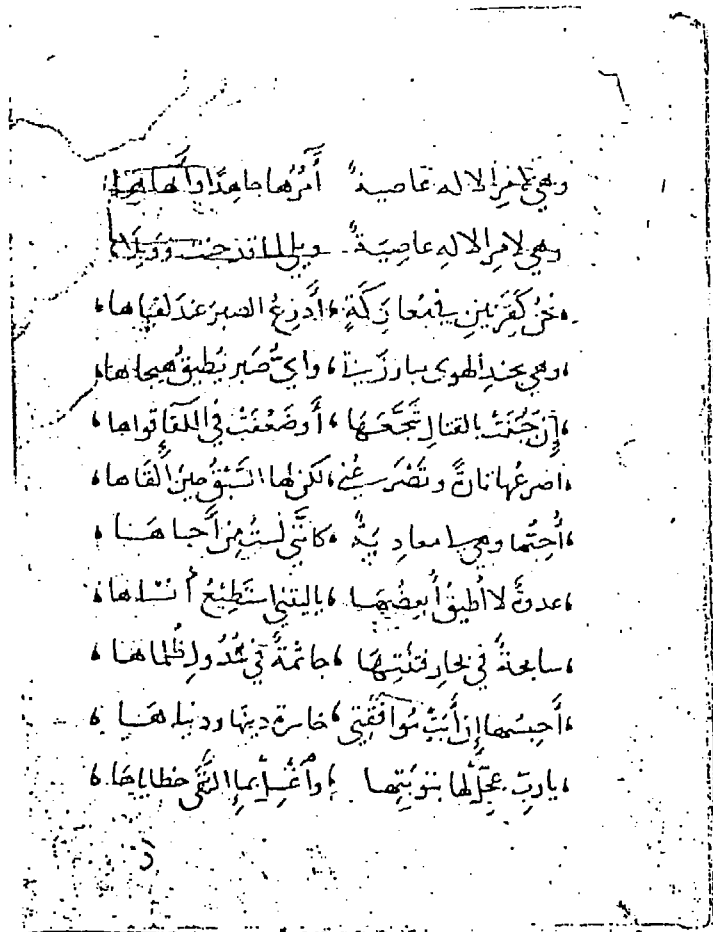 وهي لأمر الاله عاصية ً أَمُرُها جاهدًا وأنهاها
وهي لامرِ الالهِ عاصِيَةٌ ويلي لما قد جنت وويلاها
نحن كقِرنينِ في مُعا ركَةٍ ، أَدَّرِعُ الصبرَ عندَ لقياها ،
، وهي بجندِ الهوى تبارزني ، وايُّ صَبر يُطيقُ هيجاها ،
، إِن جَبُنَتْ بالقتالِ شجَّعَها ، أَوضَعُفَتْ في اللقا قواها ،
، اصرعُها تارةً وتصرعُني ، لكن لها السَّبْقُ حينَ أَلقاها ،
، أُحِبُّها وهي لي معادِ يَةٌ ، كانَّني لستُ مِن أَحبا هَــا ،
، عدوةً لا أُطيقُ أُبغِضُهَــا ، ياليتني استَطِيعُ أَنسَــاها ،
، سابحةٌ في بحارِ فتنَتِهَا ، جاثمةٌ في سُدُولِ ظُلماهــا ،
، أَحبِسُها إِن أَبَتْ مُوافَقَتِي ، خاسرة دينَها ودنيــاهَــا ،
، ياربِّ عجِّلْ لها بتوبَتِهــا ، واغْسِلْ بماءِ التُّقَى خطاياهَا ،